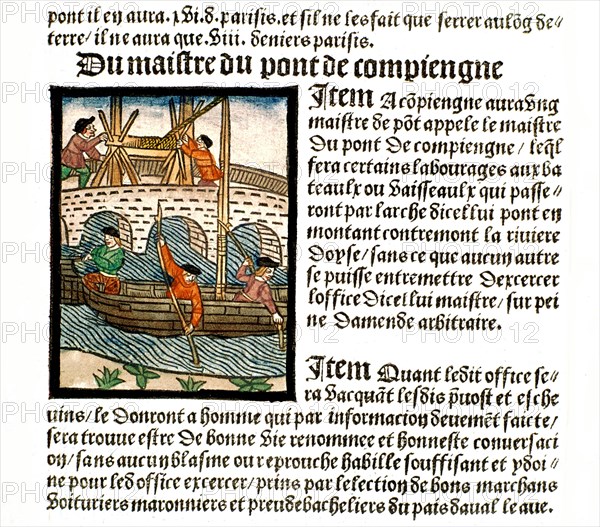 pont il en aura .xVi.d.parisis.et sil ne les fait que serrer au lõg de=
terre/il ne aura que.Viii. deniers parisis.
Du maistre du pont de compiengne
Item A cõpiengne aura Vng
maistre de põt appele le maistre
Du pont De compiengne/leq̃l
fera certains labourages aux ba
teaulx ou Vaisseaulx qui passe=
ront par larche dicellui pont en
montant contremont la riviere
Doyse/sans ce que aucun autre
se puisse entremettre Dexercer
loffice Dicellui maistre/sur pei
ne Damende arbitraire.
Item Quant ledit office se=
ra Vacquãt lesdis p̃uost et esche
uins/le Donront a homme qui par informacion deuemẽt faicte/
sera trouve estre De bonne Vie renommee et honneste conuersaci
on/sans aucun blasme ou reprouche habille souffisant et ydoi=
ne pour led office excercer/prins par lelection de bons marchans
Voituriers maronniers et preudebacheliers du pais daual leaue.
PHOTO12